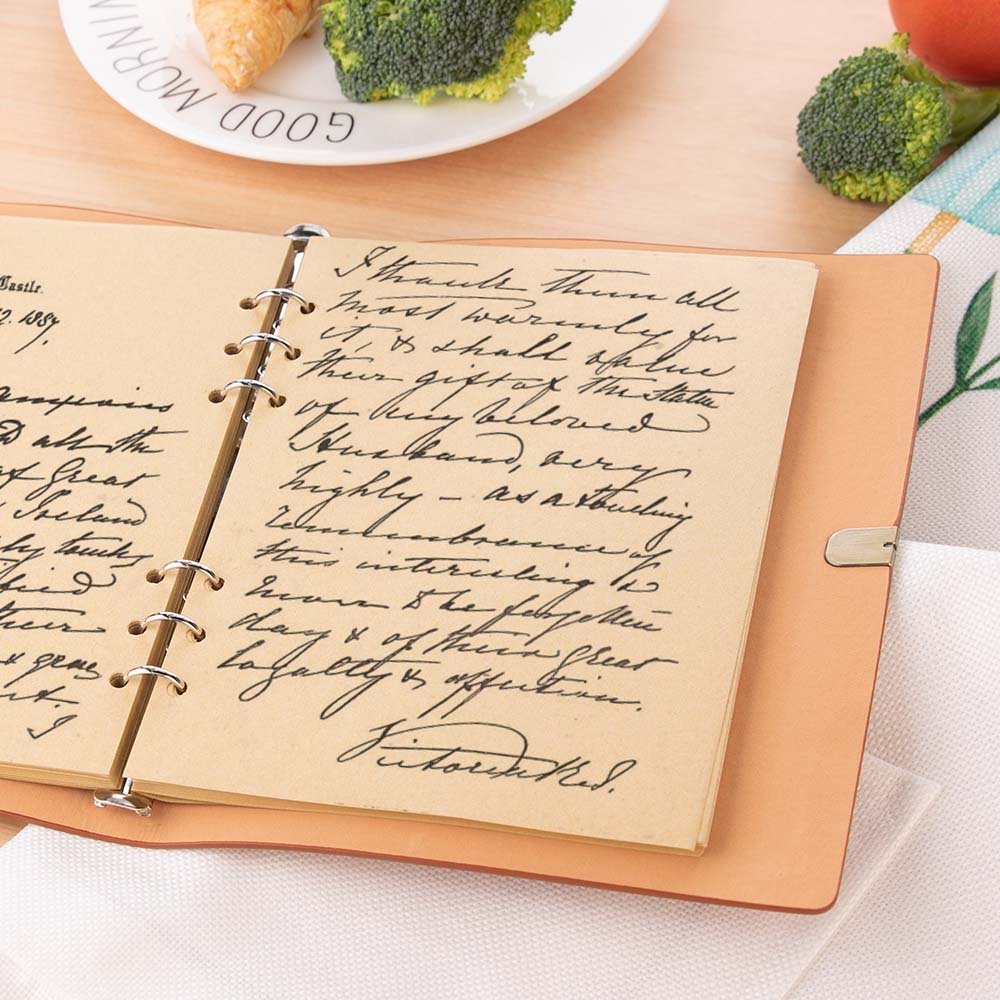 GOOD MORNIN
Castle.
2. 1887.
all the
of Great
Ireland
their
&
I
I thank them all
most warmly for
it, & shall value
their gift of the Statue
of my beloved
Husband, very
highly – as a touching
remembrance of
this interesting &
never to be forgotten
day & of their great
loyalty & affection.
Victoria